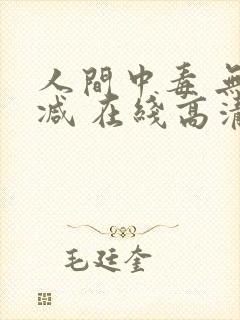 人間中毒 無
减 在綫高清
毛廷奎